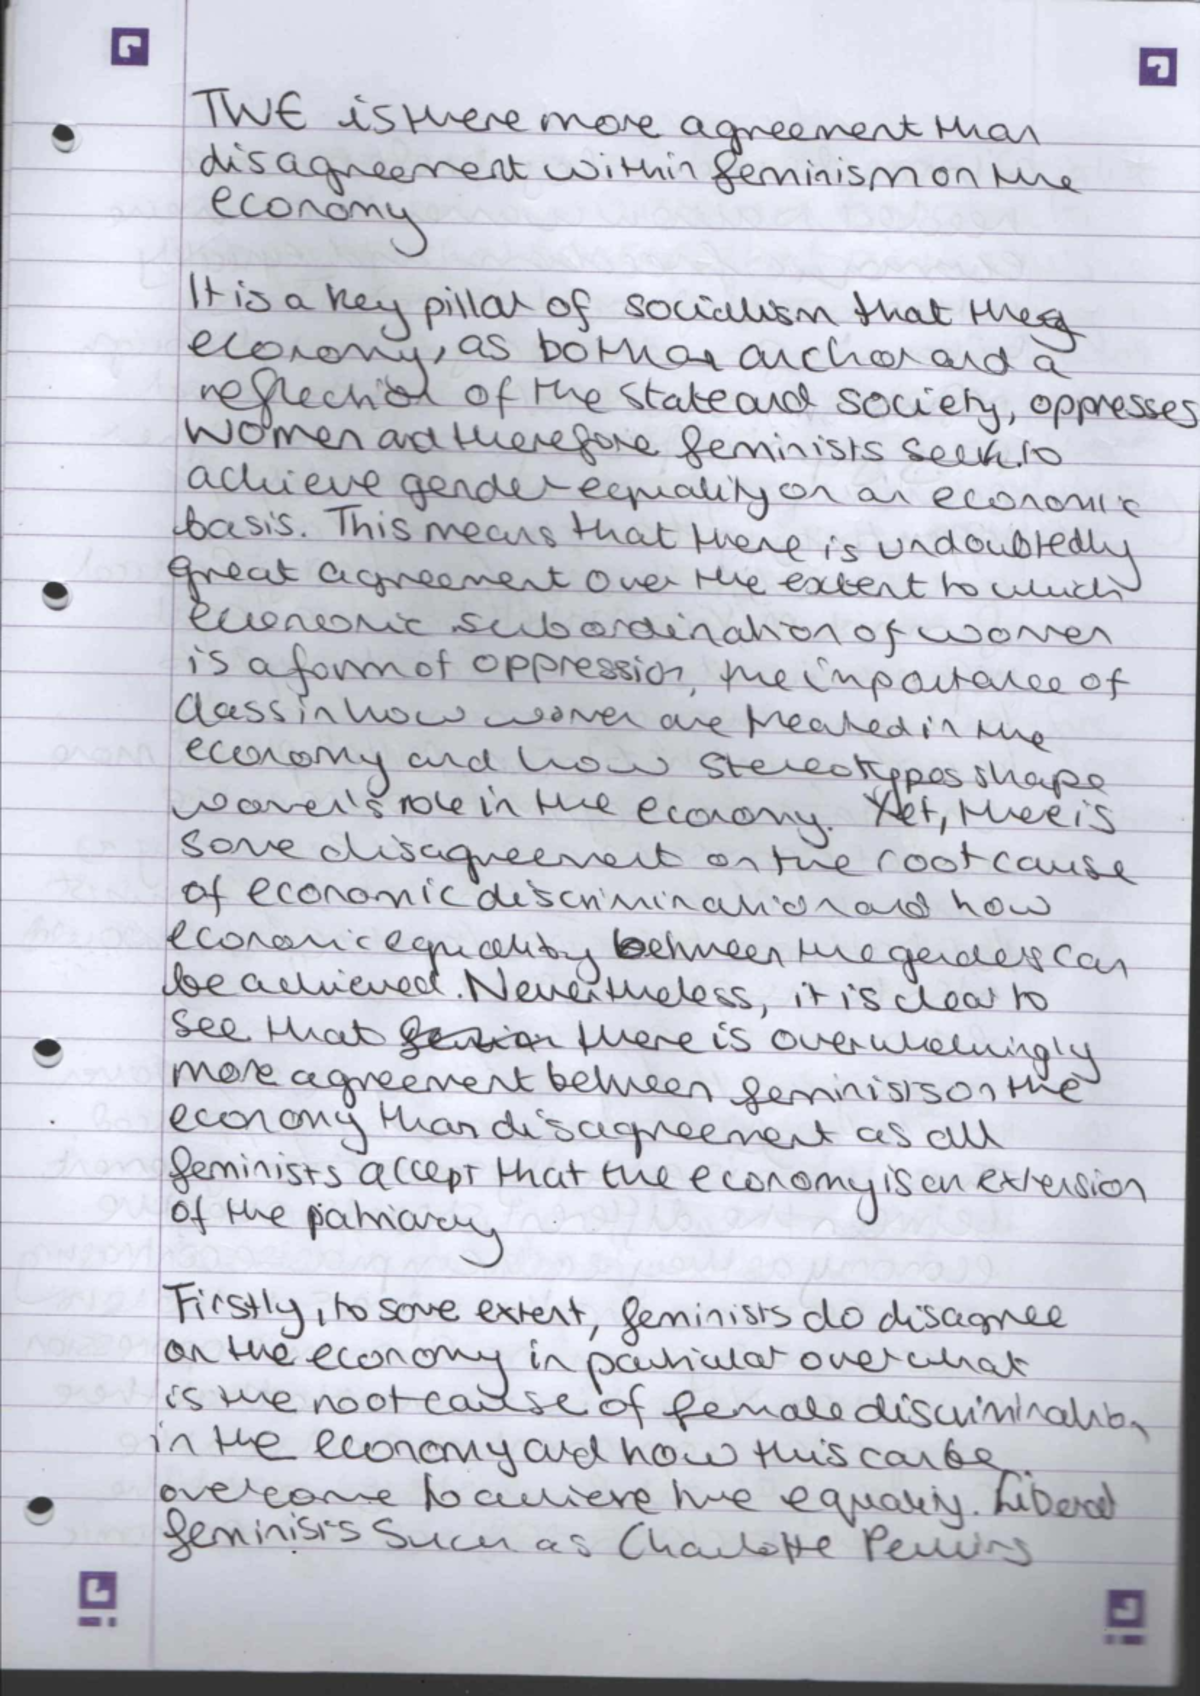 TWE is there more agreement than
disagreement within feminism on the
economy
It is a key pillar of socialism that the
economy, as both an anchor and a
reflection of the state and society, oppresses
women and therefore feminists seek to
achieve gender equality on an economic
basis. This means that there is undoubtedly
great agreement over the extent to which
economic subordination of women
is a form of oppression, the importance of
class in how women are treated in the
economy and how stereotypes shape
women's role in the economy. Yet, there is
some disagreement on the root cause
of economic discrimination and how
economic equality between the genders can
be achieved. Nevertheless, it is clear to
see that there is overwhelmingly
more agreement between feminists on the
economy than disagreement as all
feminists accept that the economy is an extension
of the patriarcy
Firstly, to some extent, feminists do disagree
on the economy in particular over what
is the root cause of female discrimination
in the economy and how this can be
overcome to achieve true equality. Liberal
feminists such as Charlotte Perkins